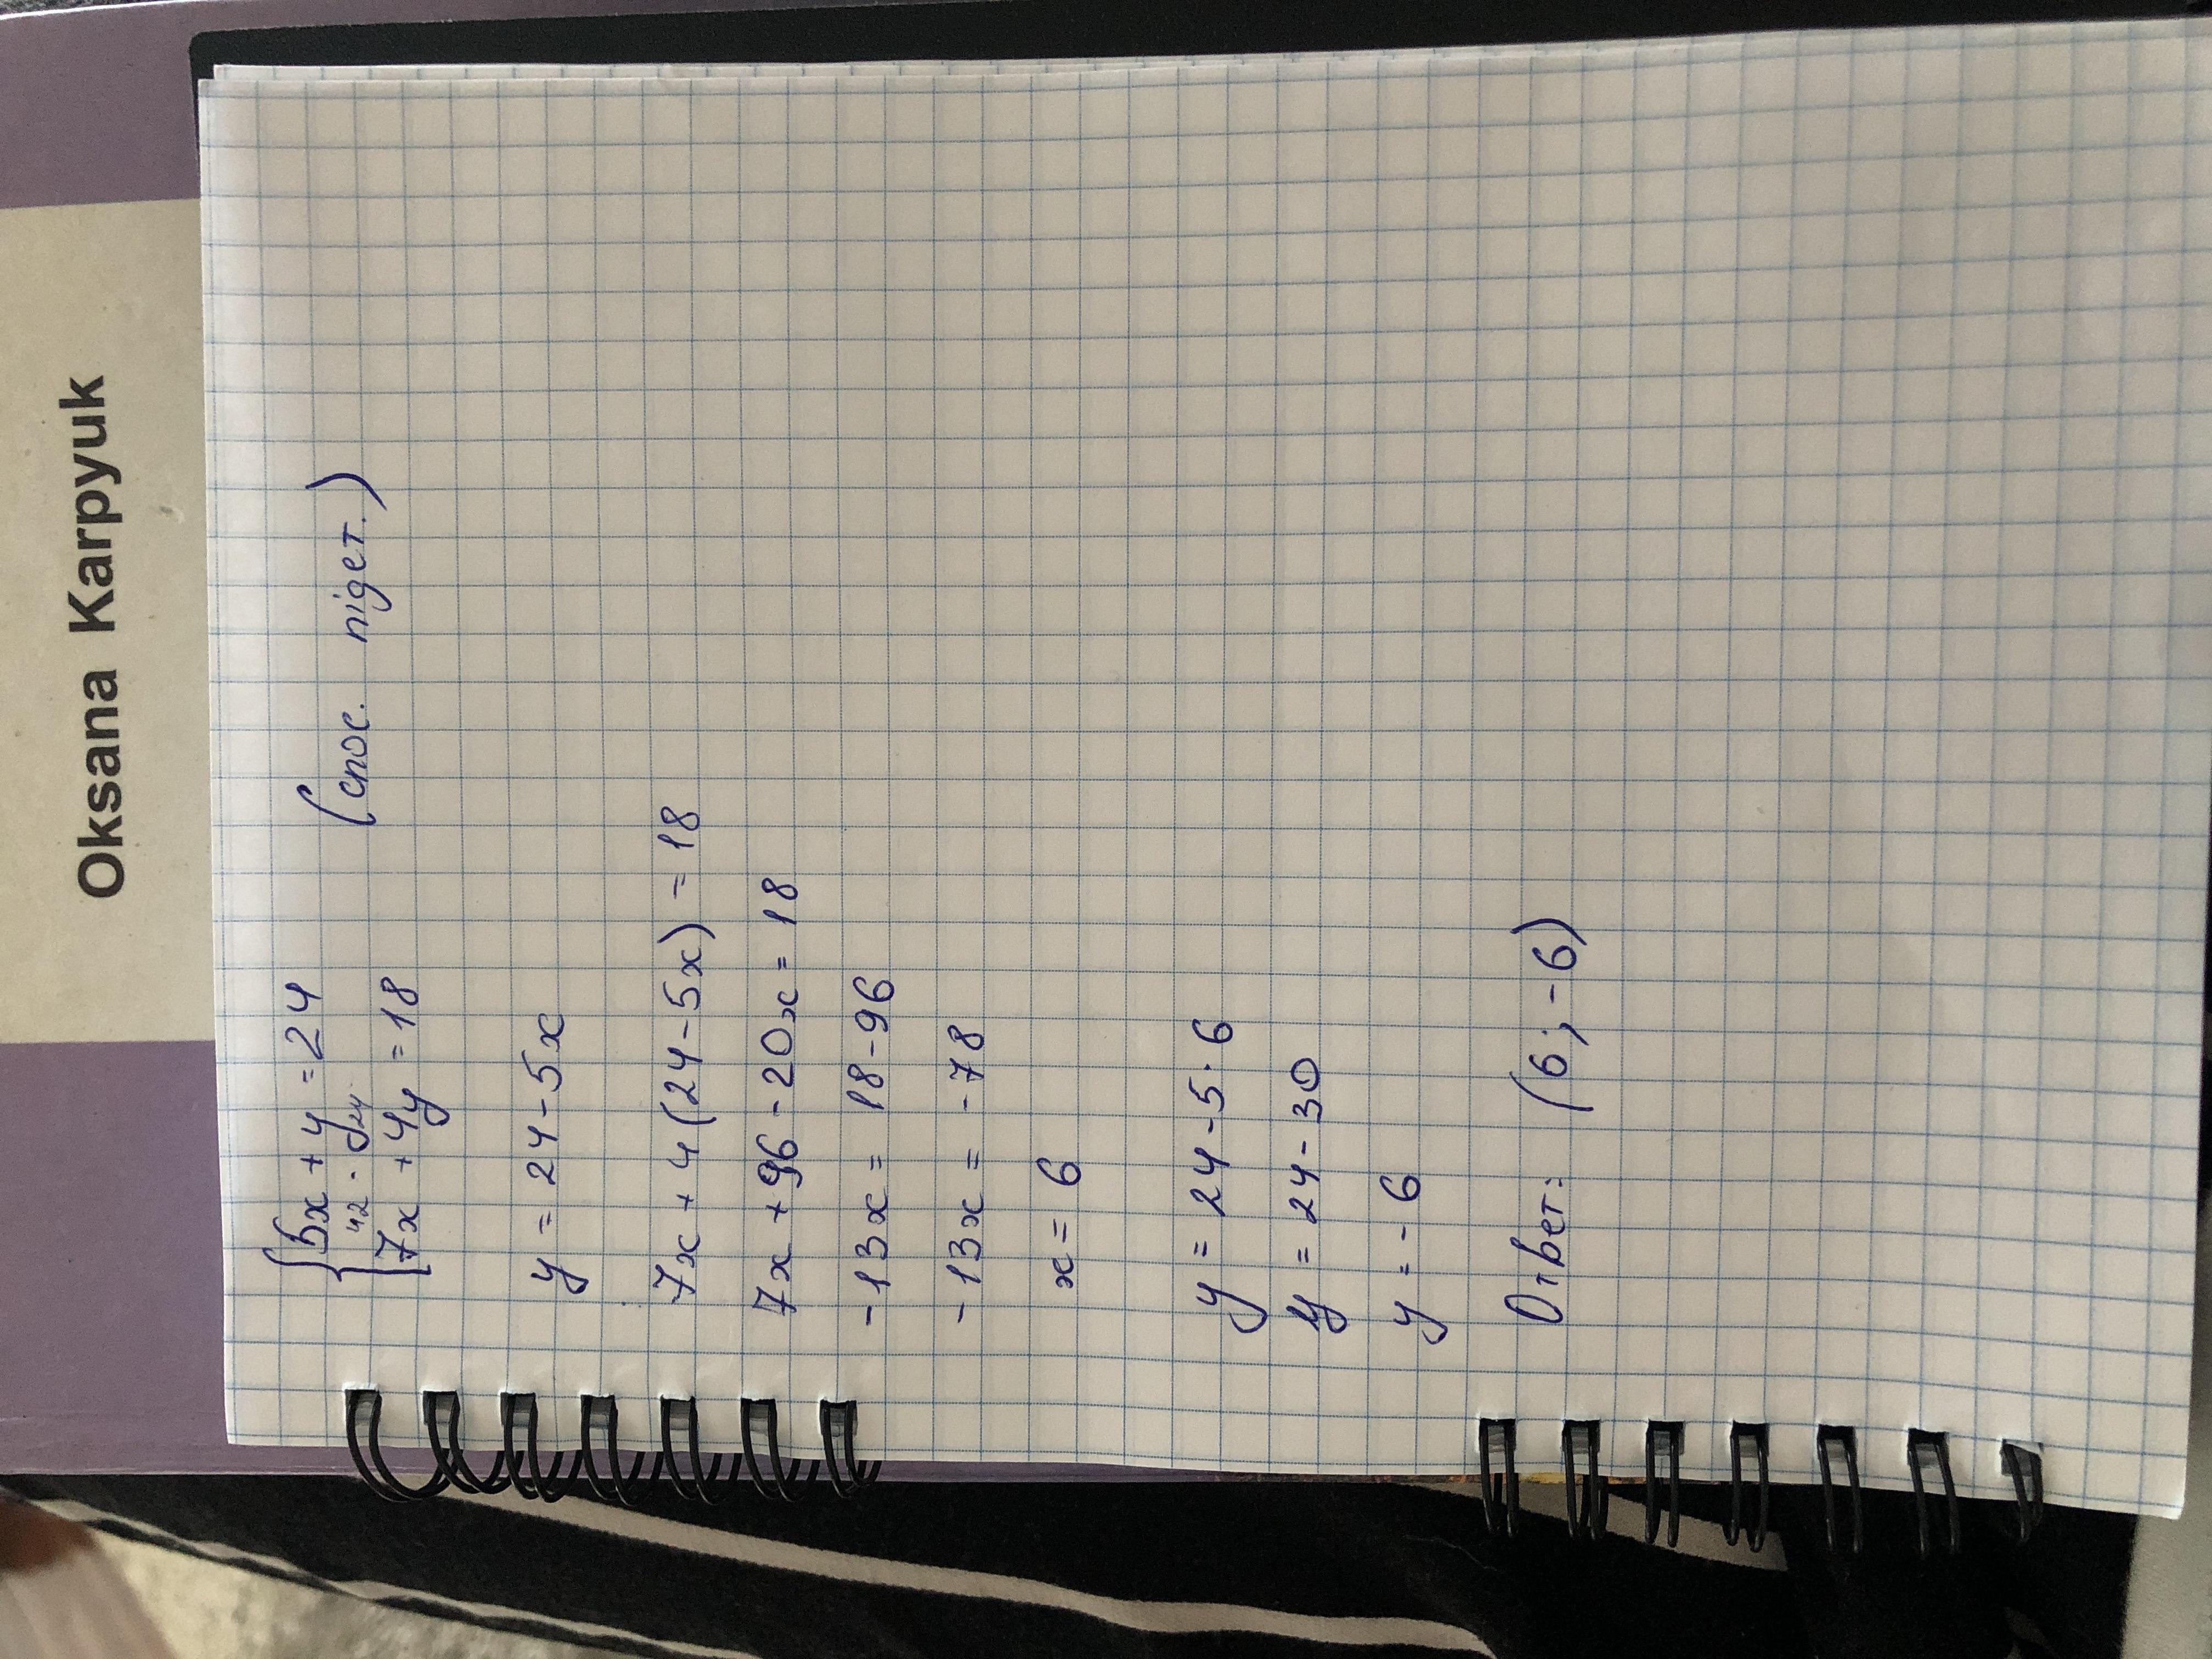 Oksana Karpyuk
5x + y = 24 (спос. підст.)
7x + 4y = 18
y = 24 - 5x
7x + 4(24 - 5x) = 18
7x + 96 - 20x = 18
-13x = 18 - 96
-13x = -78
x = 6
y = 24 - 5 · 6
y = 24 - 30
y = - 6
Ответ: (6 ; -6)